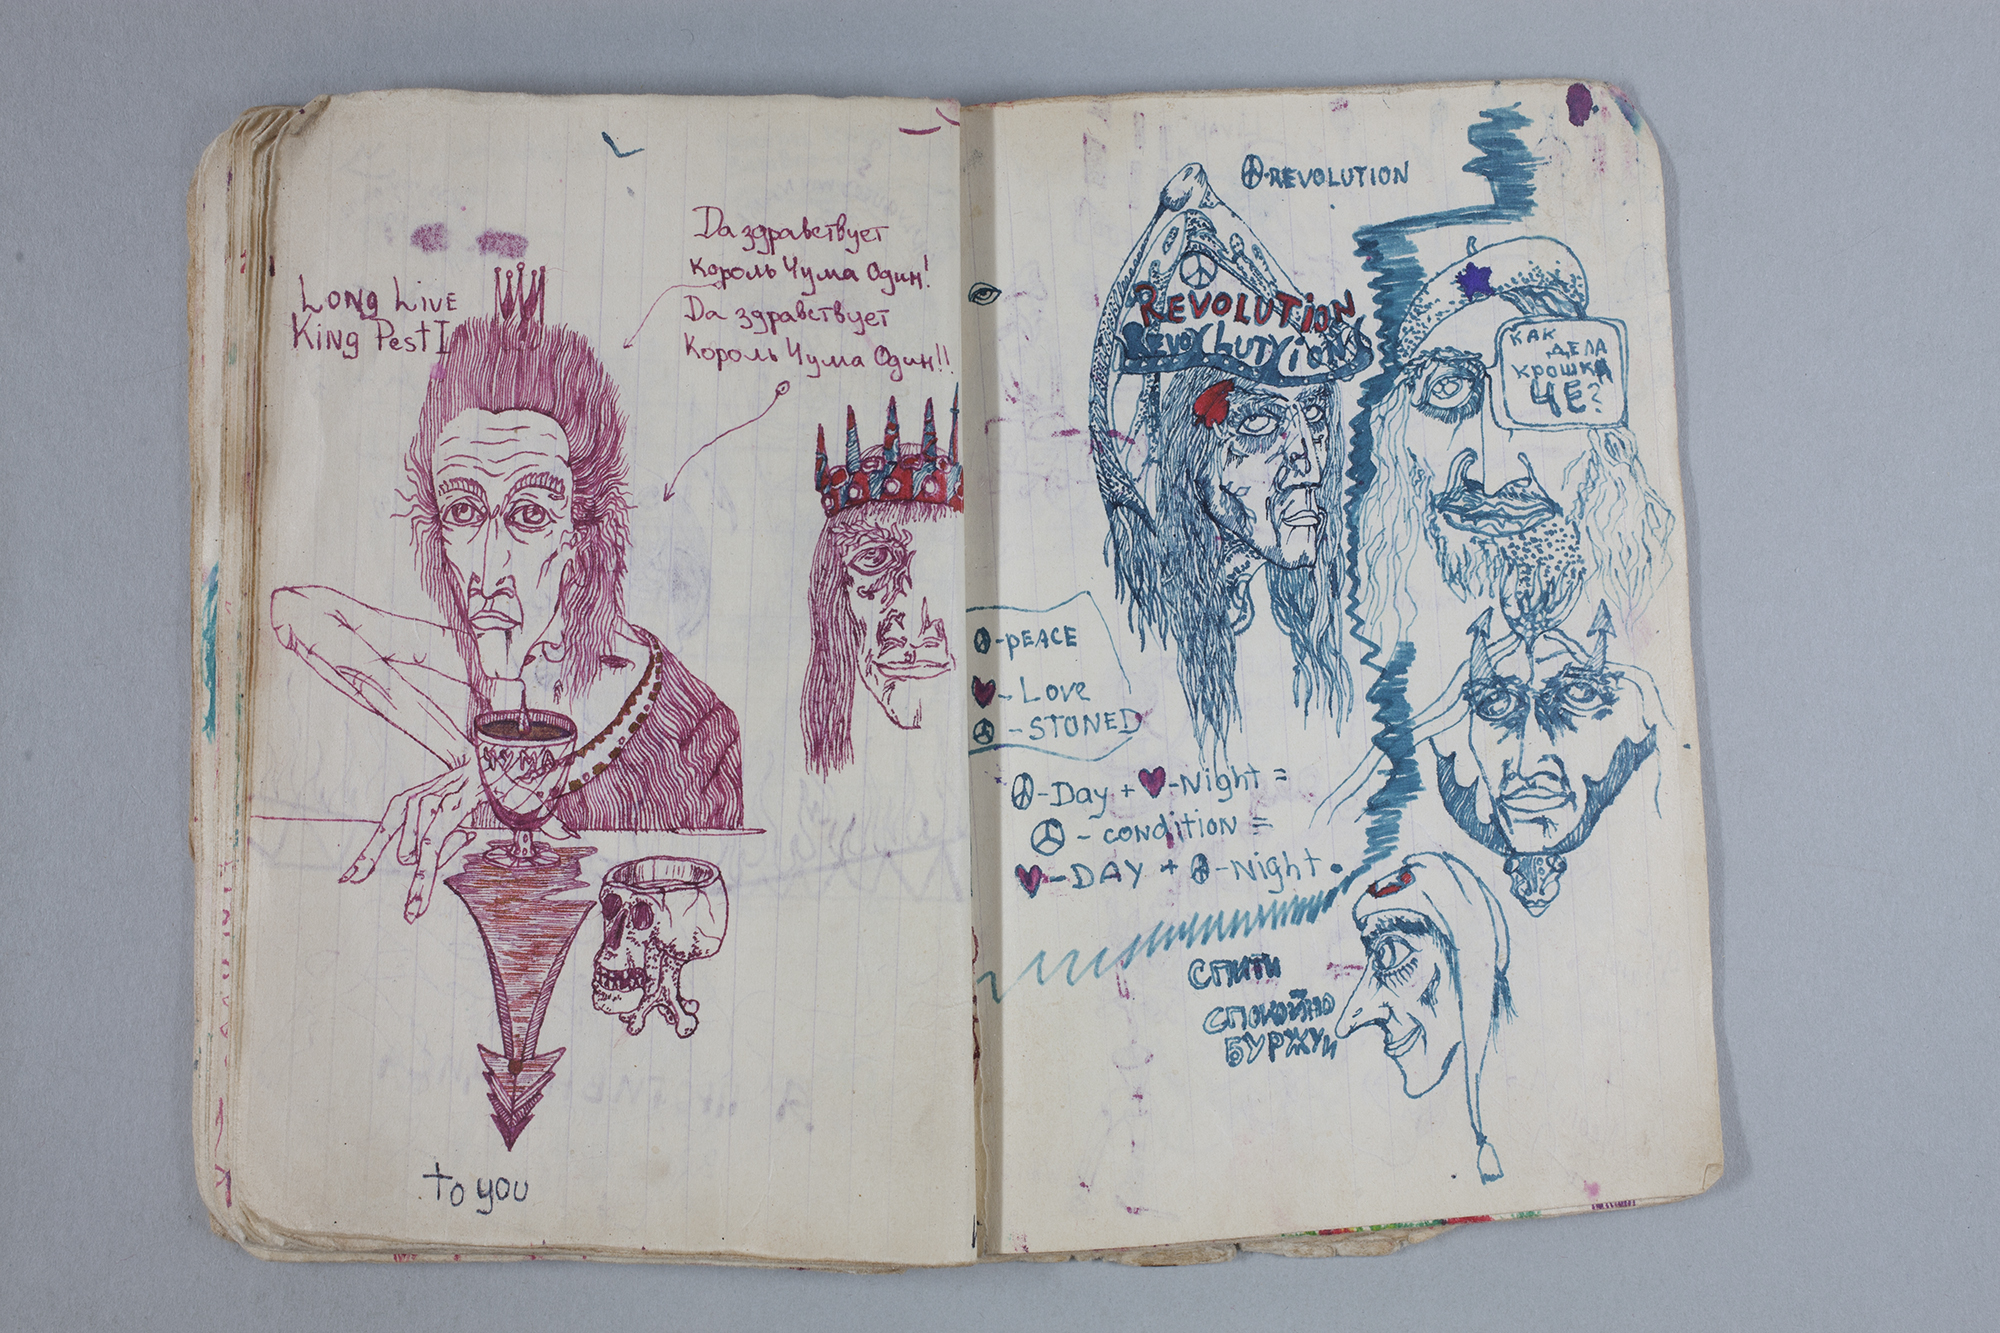 Long Live
King Pest I
Да здравствует
Король Чума Один!
Да здравствует
Король Чума Один!!
ЧУМА
to you
☮-REVOLUTION
REVOLUTION
КАК
ДЕЛА
КРОШКА
ЧЕ?
☮-PEACE
♥-Love
-STONED
☮-Day + ♥-Night =
-condition =
♥-DAY + ☮-Night.
СПИТИ
СПОКОЙНО
БУРЖУИ